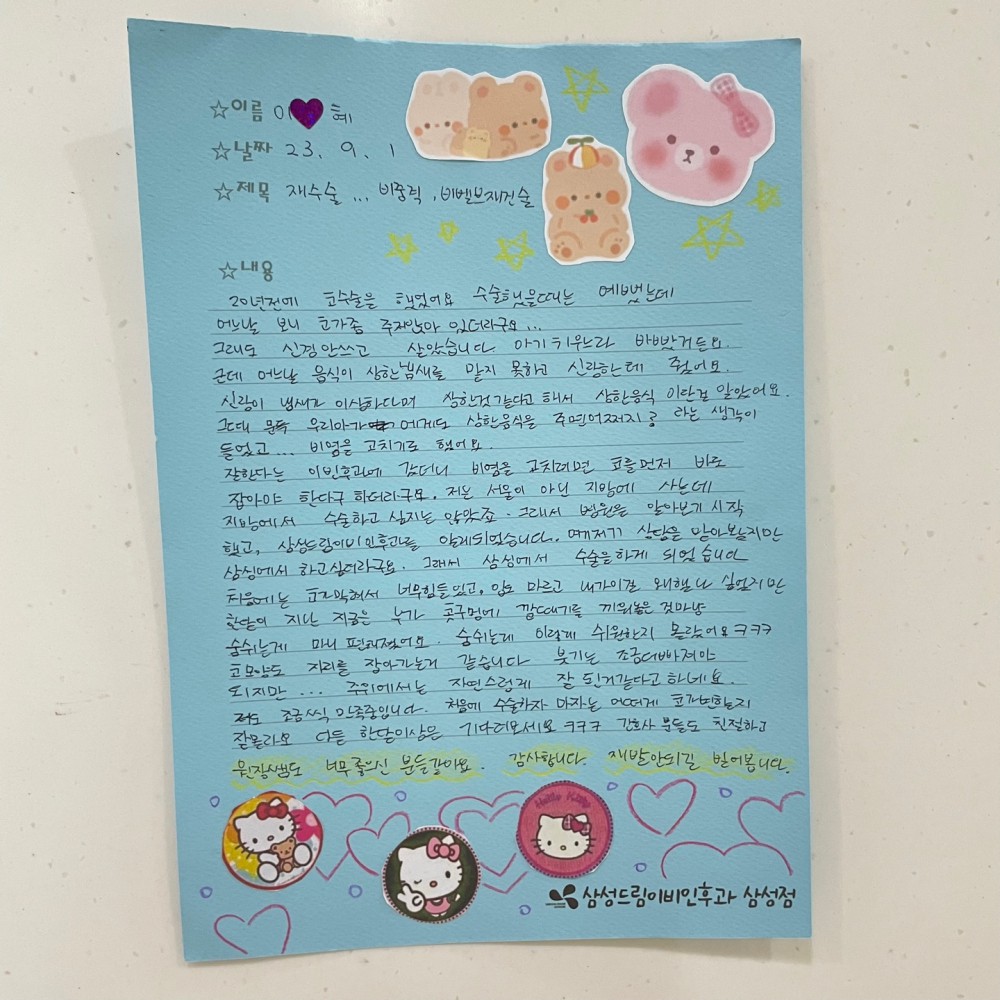 ☆이름 이 혜
☆날짜 23. 9. 1
☆제목 재수술 ... 비중격, 비밸브재건술
☆내용
20년전에 코수술을 했었어요 수술했을때는 예뻤는데
어느날 보니 코가좀 주저앉아 있더라구요...
그래도 신경안쓰고 살았습니다. 아기키우느라 바빴거든요.
근데 어느날 음식이 상한냄새를 맡지 못하고 신랑한테 줬어요.
신랑이 냄새가 이상하다며 상한것같다고 해서 상한음식 이란걸 알았어요.
그때 문득 우리아가 에게도 상한음식을 주면어쩌지? 라는 생각이
들었고... 비염을 고치기로 했어요.
잘한다는 이빈후과에 갔더니 비염을 고치려면 코를먼저 바로
잡아야 한다구 하더라구요. 저는 서울이 아닌 지방에 사는데
지방에서 수술하고 싶지는 않았죠. 그래서 병원을 알아보기 시작
했고, 삼성드림이비인후과를 알게되었습니다. 여기저기 상담을 받아봤지만
삼성에서 하고싶더라구요. 그래서 삼성에서 수술을하게 되었습니다
처음에는 코가막혀서 너무힘들었고, 입도 마르고 내가이걸 왜했나 싶었지만
한달이 지난 지금은 누가 콧구멍에 깔때기를 끼워놓은 것마냥
숨쉬는게 마니 편해졌어요. 숨쉬는게 이렇게 쉬원한지 몰랐어요ㅋㅋㅋ
코모양도 자리를 잡아가는거 같습니다 붓기는 조금더빠져야
되지만 ... 주위에서는 자연스럽게 잘 된거같다고 하네요.
저도 조금씩 만족중입니다. 처음에 수술하자 마자는 어떻게 코가변할지
잘몰라요 다들 한달이상은 기다려보세요 ㅋㅋㅋ 간호사 분들도 친절하고
원장쌤도 너무좋으신 분들같아요. 감사합니다. 재발안되길 빌어봅니다.
Hello Kitty
삼성드림이비인후과 삼성점